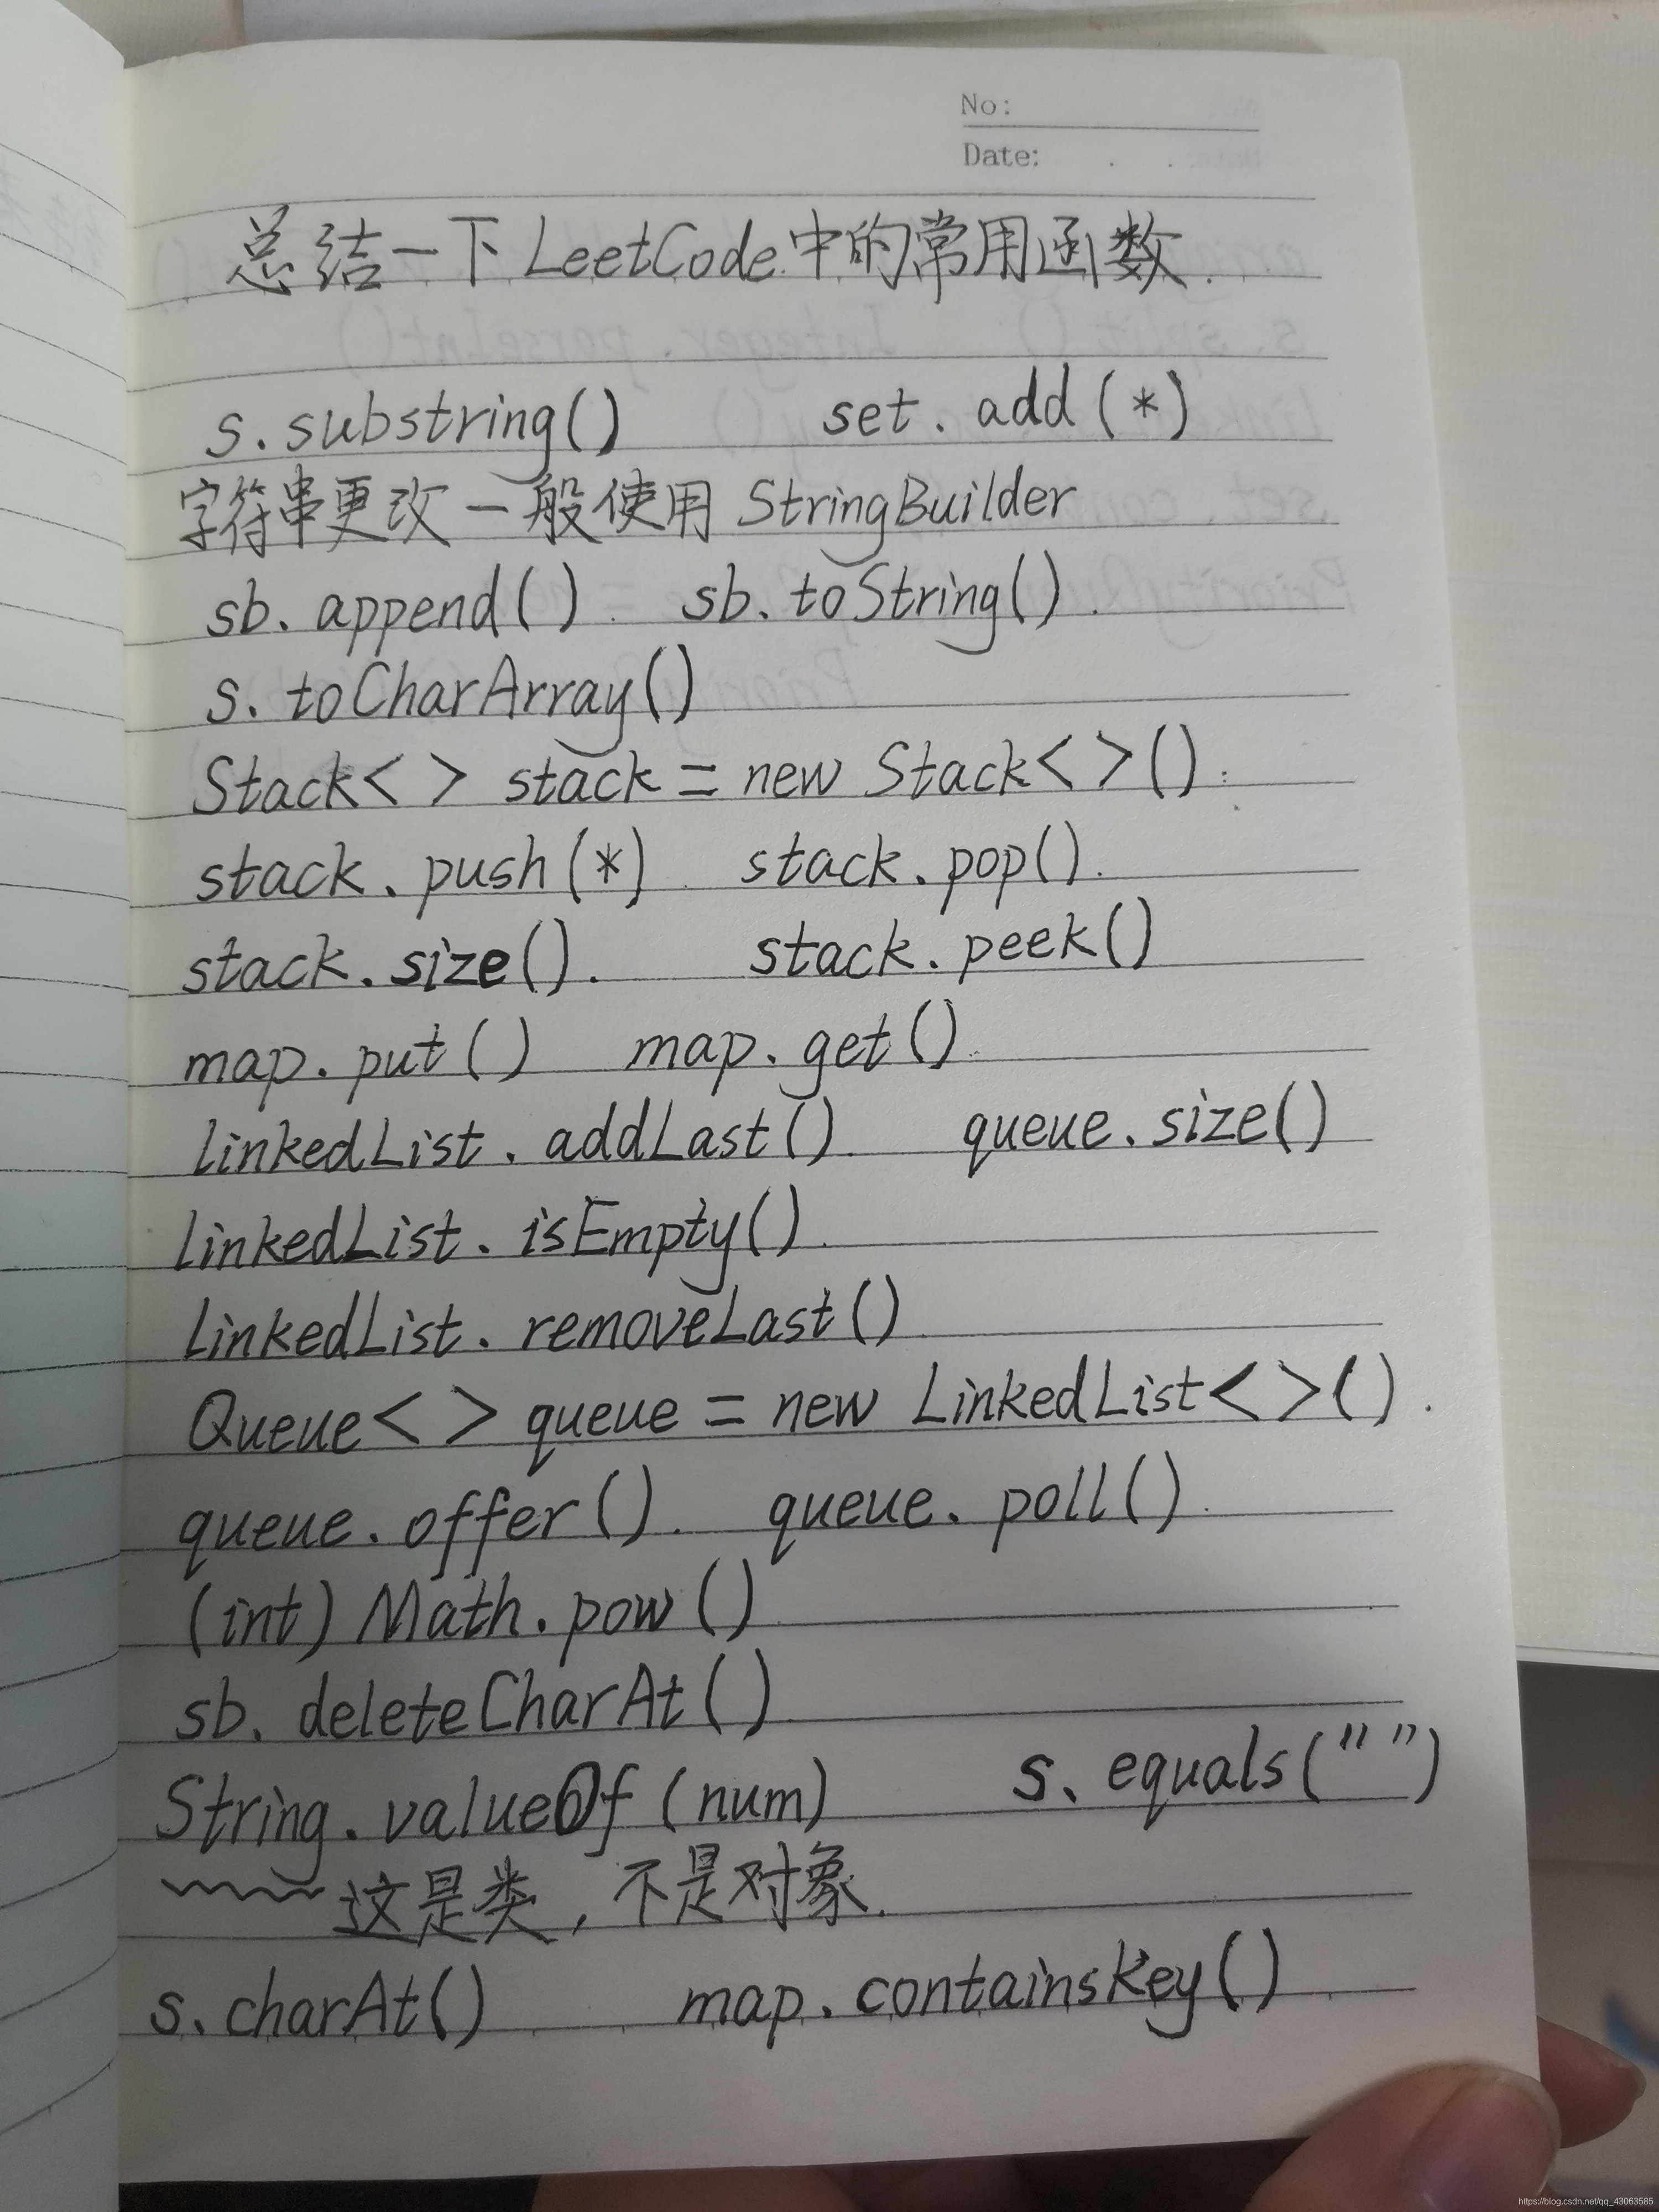 No:
Date: . .
总结一下LeetCode中的常用函数.
s.substring() set.add(*)
字符串更改一般使用 StringBuilder
sb.append(). sb.toString().
s.toCharArray()
Stack< > stack = new Stack< >().
stack.push(*) stack.pop().
stack.size(). stack.peek()
map.put() map.get().
linkedList.addLast() queue.size()
linkedList.isEmpty()
linkedList.removeLast()
Queue< > queue = new LinkedList< >().
queue.offer(). queue.poll().
(int) Math.pow()
sb.deleteCharAt()
String.valueOf(num) s.equals("")
这是类，不是对象.
s.charAt() map.containsKey()
https://blog.csdn.net/qq_43063585